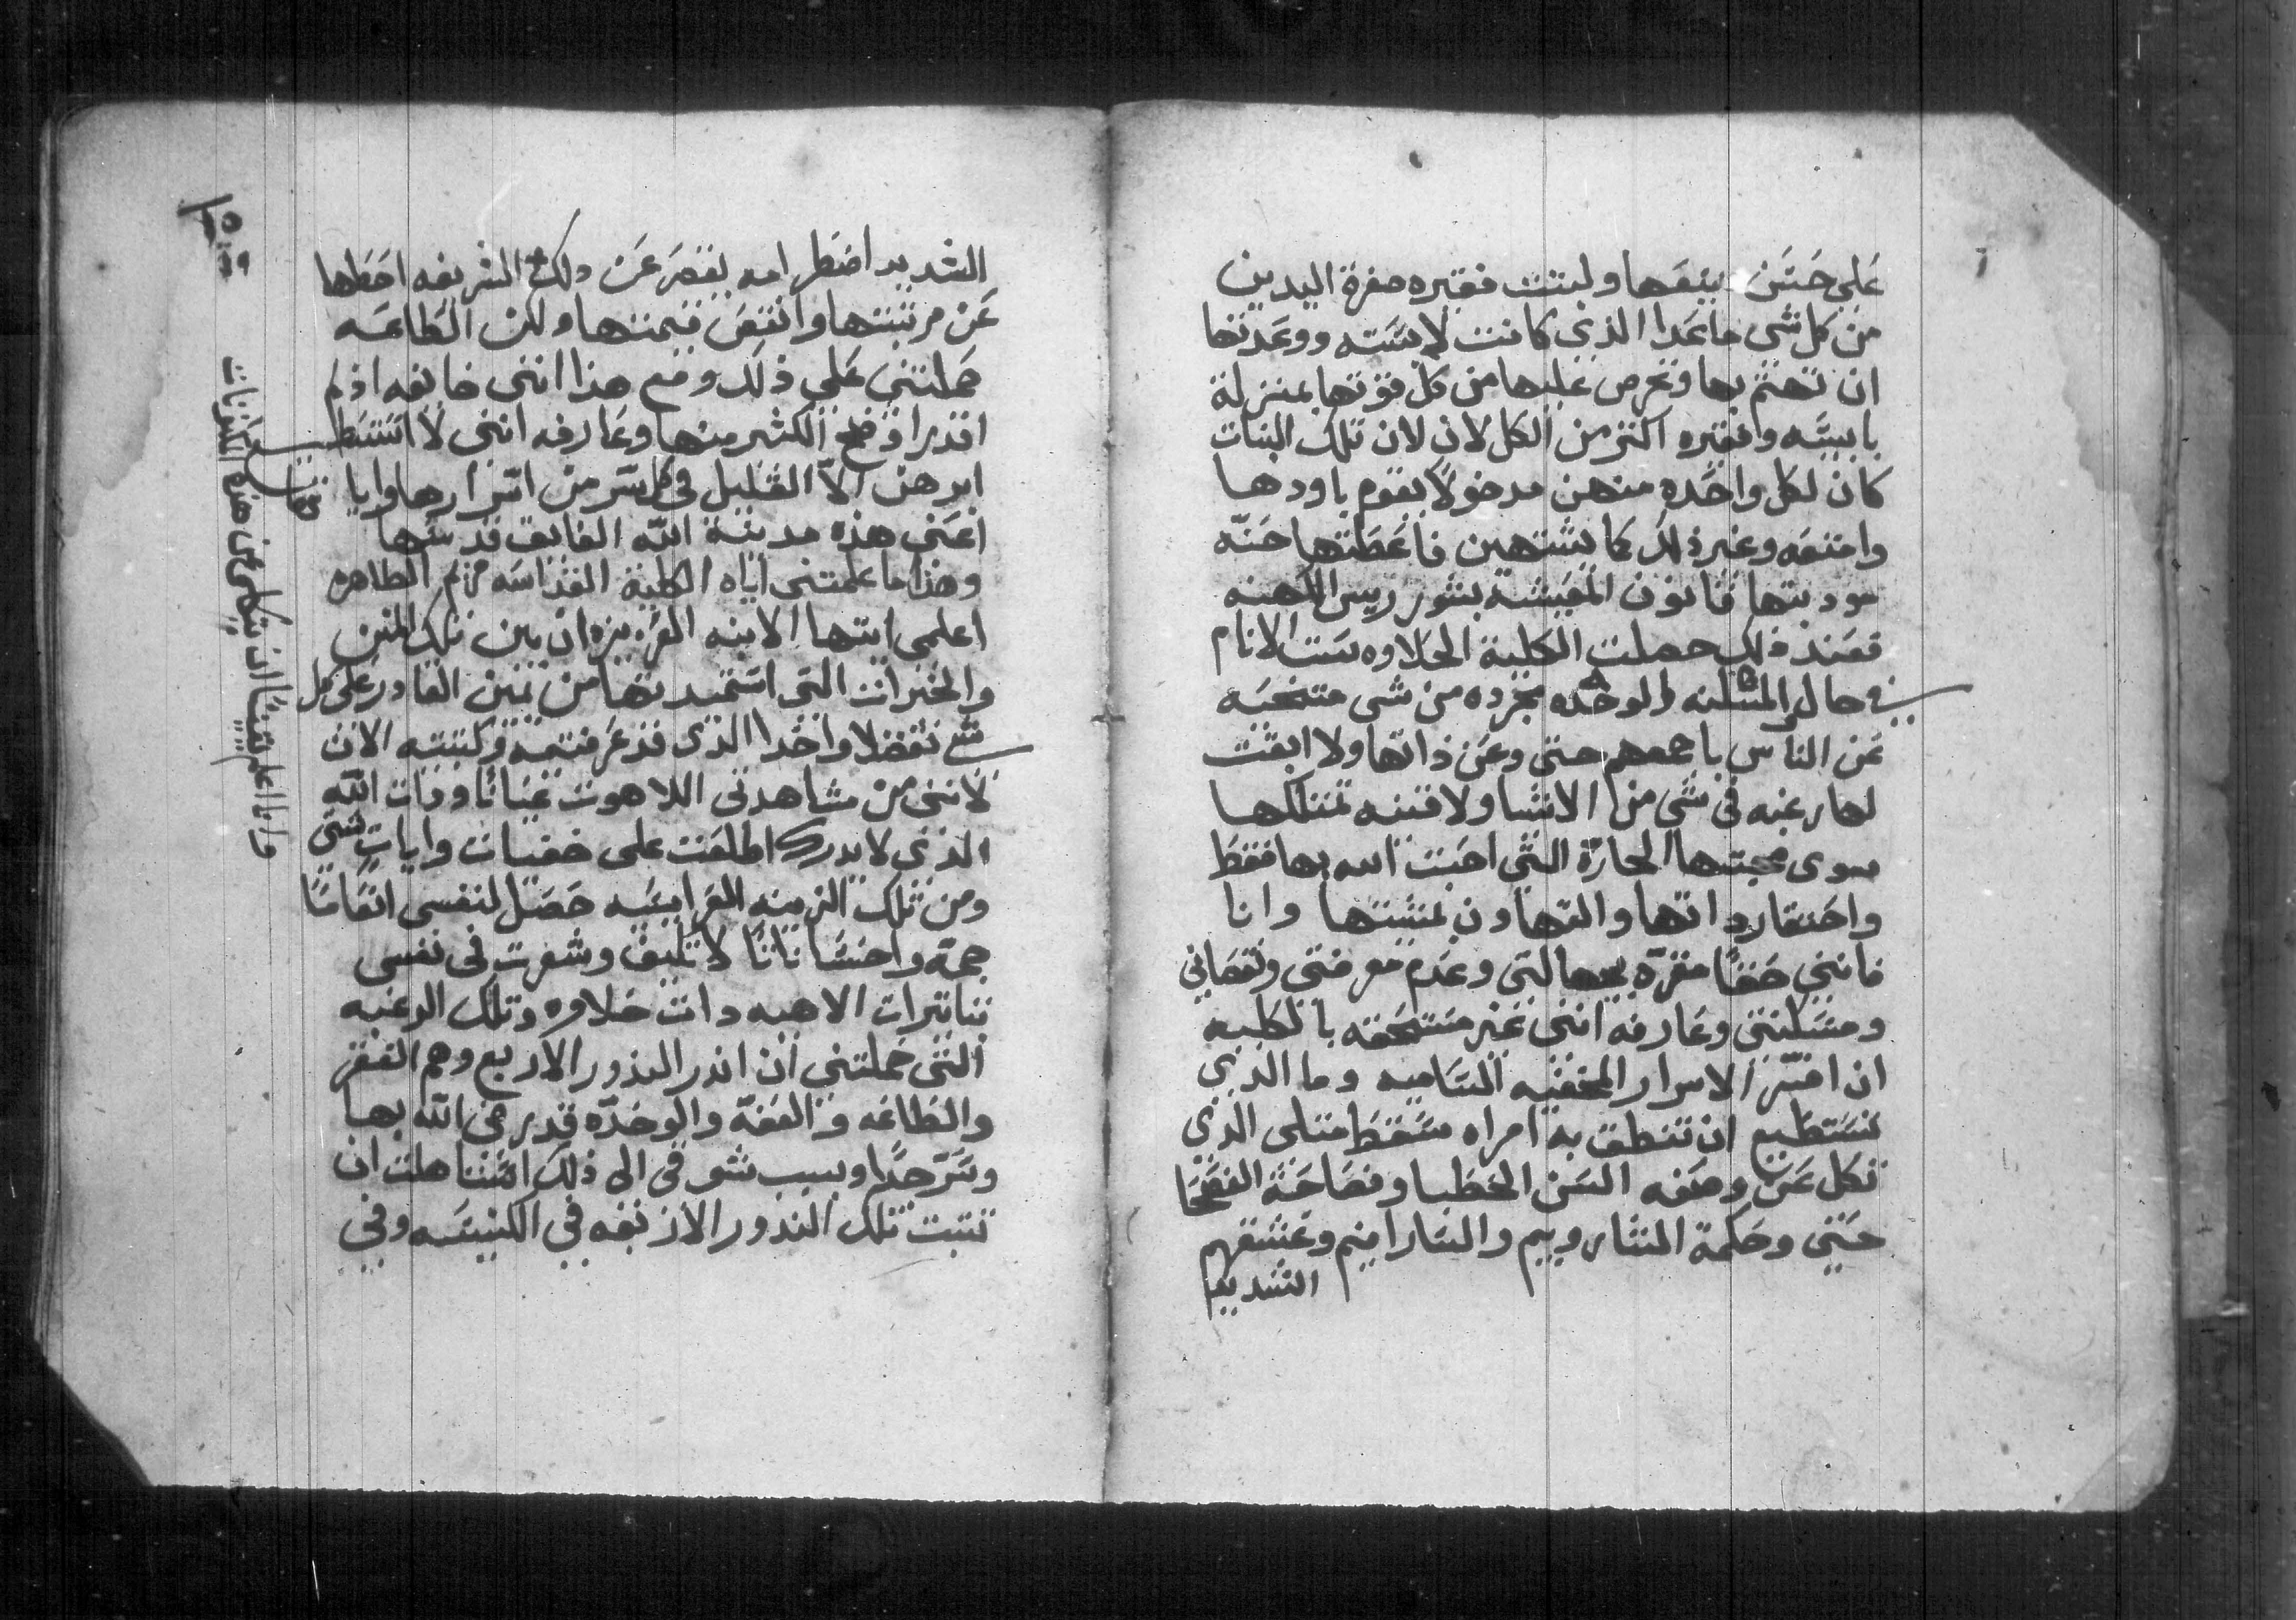 علي حتن بيعها ولبثت فقيره صفرة اليدين
من كل شي ما عدا الذي كانت لابسته ووعدتها
ان تهتم بها وتحرص عليها من كل قوتها بمنزلة
يا بيسه وفقيره اكثر من الكل لان لان تلك البنات
كان لكل واحده منهن مدخولاً يقوم باودها
وامتعه وغير ذلك كما يشتهين فاعطتها حنّه
موديتها قانون المعيشه بشور رييس الكهنه
فعند ذلك حصلت الكلية الحلاوه ست الانام
في حال المسكنه والوحده مجرده من شي متنحيه
عن الناس باجمعهم حتى وعن ذاتها ولا ابقت
لها رغبه في شي من الاشيا ولا قنيه تمتلكها
سوى محبتها الحارّة التي احبت الله بها فقط
واحتقار ذاتها والتهاون بمشيتها وانا
فانني حقاً مقرّه بجهالتي وعدم معرفتي ونقصاني
ومسكنتي وعارفه انني غير مستحقه بالكليه
ان افسّر الاسرار المخفيه الساميه وما الذي
تستطيع ان تنطق به امراه سقط مثلي الذي
تكل عن وصفه السن الخطبا وفصاحة الفصحا
حتي وحكمة الشاروبيم والسارافيم وعشقهم
الشديد
الشديد اضطرامه يقصر عن ذلك الشريفه احطها
عن مرتبتها وانقص قيمتها ولكن الطاعه
حملتني علي ذلك ومع هذا انني خايفه اذ لم
اقدر اوضح الكثير منها وعارفه انني لا استطيع
ابرهن الا القليل في كل سر من اسرارها وايا
اعني هذه مدينة الله الفايق قدسها
وهذا ما علمتني اياه الكلية القداسه مريم الطاهره
اعلمي ايتها الابنه العزيزه ان بين تلك المنن
والخيرات التي استمديتها من يمين القادر علي كل
شي تفضلا واحدا الذي قد عرفتيه وكتبتيه الان
لانني من مشاهدتي اللاهوت عياناً وذات الله
الذي لا يدرك اطلعت على خفيات وايات شتى
ومن تلك الزينه الغرايبيه حصل لنفسي انعاماً
جمة واحساناتاً لا تليق وشعرت في نفسي
بتاثيرات الاهيه ذات حلاوه وتلك الرغبه
التي حملتني ان انذر النذور الاربع وهم الفقر
والطاعه والعفّه والوحده قد رضي الله بها
وسرّ جداً وبسبب شوقي الى ذلك استاهلت ان
تثبت تلك النذور الاربعه في الكنيسه وفي
وانا اعلم يقيناً ان يتكلم عن هذه الكنوزات